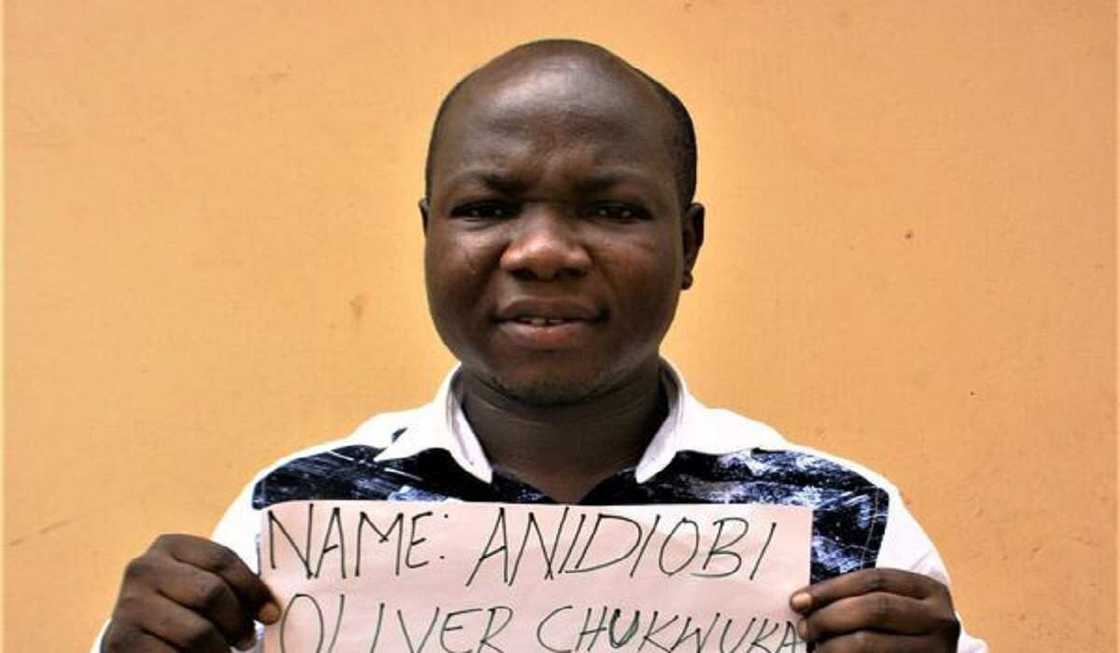 NAME: ANIDIOBI
OLIVER CHUKWUKA